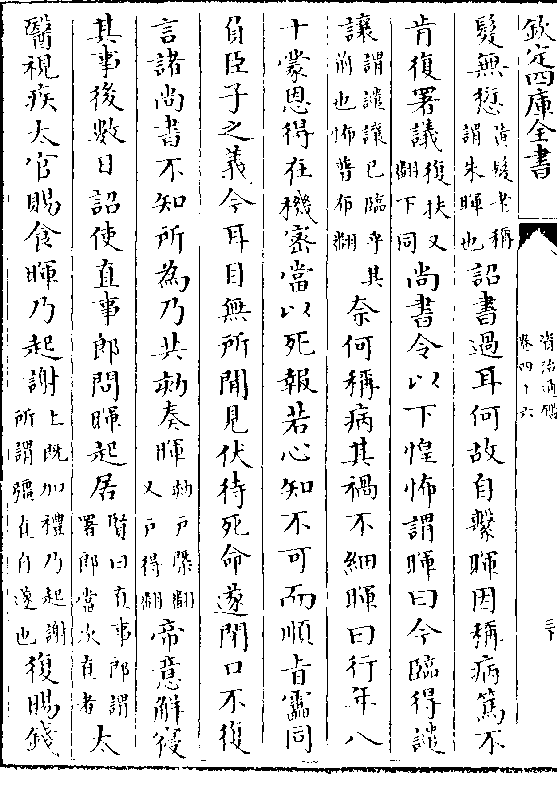 欽定四庫全書
資治通鑑
卷四十六
髮無愆黃髮老稱謂朱暉也詔書過耳何故自繫暉因稱病篤不
肯復署議復扶又翻下同尚書令以下惶怖謂暉曰今臨得譴
讓謂譴讓已臨乎其前也怖普布翻奈何稱病其禍不細暉曰行年八
十蒙恩得在機密當以死報若心知不可而順旨雷同
負臣子之義今耳目無所聞見伏待死命遂閉口不復
言諸尚書不知所為乃共劾奏暉劾戶槩翻又戶得翻帝意解寢
其事後數日詔使直事郎問暉起居賢曰直事郎謂署郎當次直者太
醫視疾太官賜食暉乃起謝上既加禮乃起謝所謂彊直自遂也復賜錢